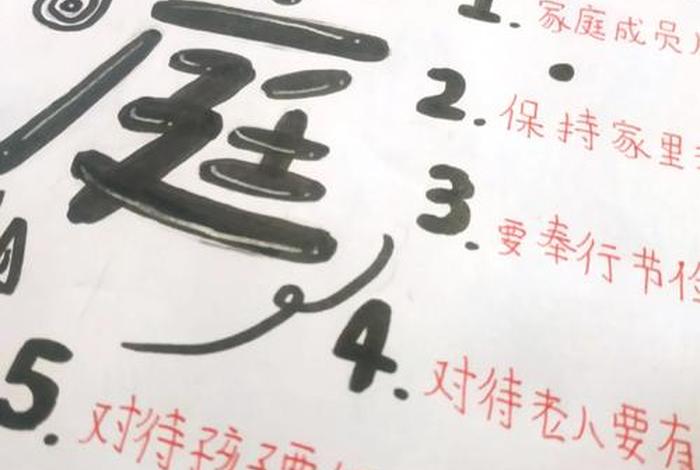 庭
1. 家庭成员
2. 保持家里
3. 要奉行节俭
4. 对待老人要有
5. 对待孩子要